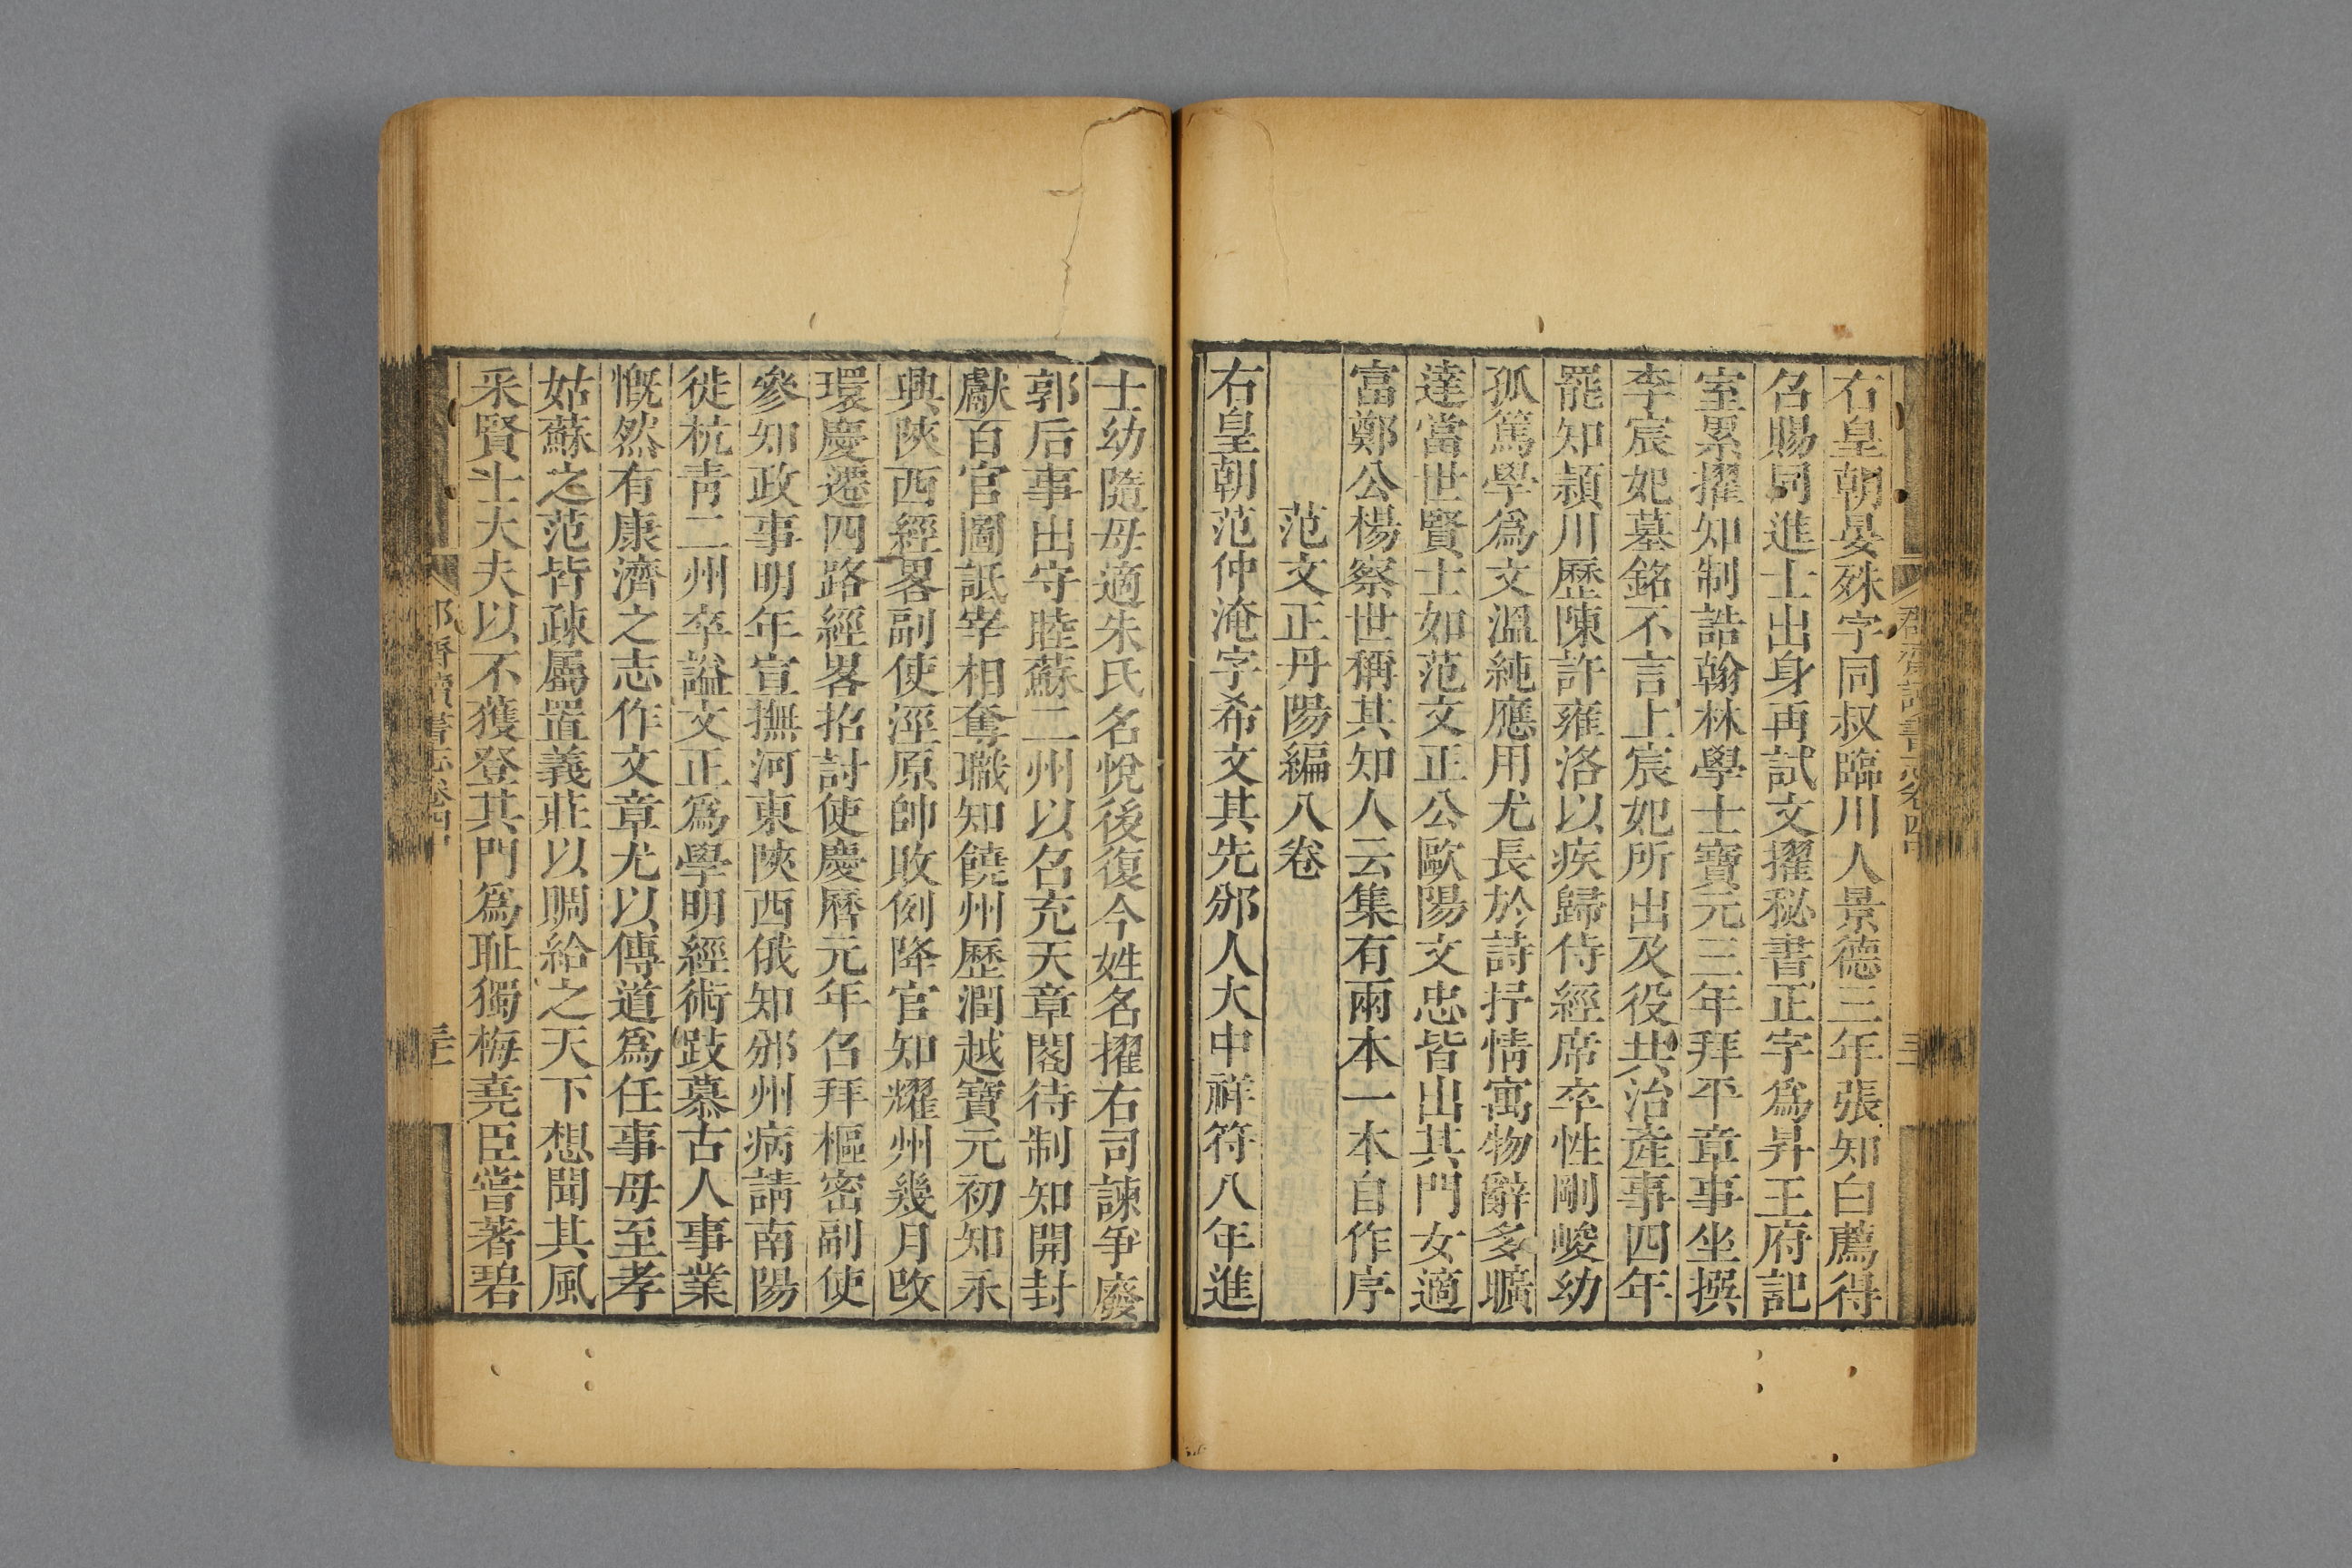 右皇朝晏殊字同叔臨川人景德三年張知白薦得
召賜同進士出身再試文擢秘書正字爲昇王府記
室累擢知制誥翰林學士寶元三年拜平章事坐撰
李宸妃墓銘不言上宸妃所出及役共治產事四年
罷知潁川歷陳許雍洛以疾歸侍經席卒性剛峻幼
孤篤學爲文溫純應用尤長於詩抒情寓物辭多曠
達當世賢士如范文正公歐陽文忠皆出其門女適
富鄭公楊察世稱其知人云集有兩本一本自作序
范文正丹陽編八卷
右皇朝范仲淹字希文其先邠人大中祥符八年進
士幼隨母適朱氏名悅後復今姓名擢右司諫爭廢
郭后事出守睦蘇二州以召充天章閣待制知開封
獻百官圖詆宰相奪職知饒州歷潤越寶元初知永
興陝西經畧副使涇原帥敗例降官知耀州幾月改
環慶遷四路經畧招討使慶曆元年召拜樞密副使
參知政事明年宣撫河東陝西俄知邠州病請南陽
徙杭靑二州卒謚文正爲學明經術跂慕古人事業
慨然有康濟之志作文章尤以傳道爲任事母至孝
姑蘇之范皆疎屬置義莊以賙給之天下想聞其風
釆賢士大夫以不獲登其門爲耻獨梅堯臣嘗著碧